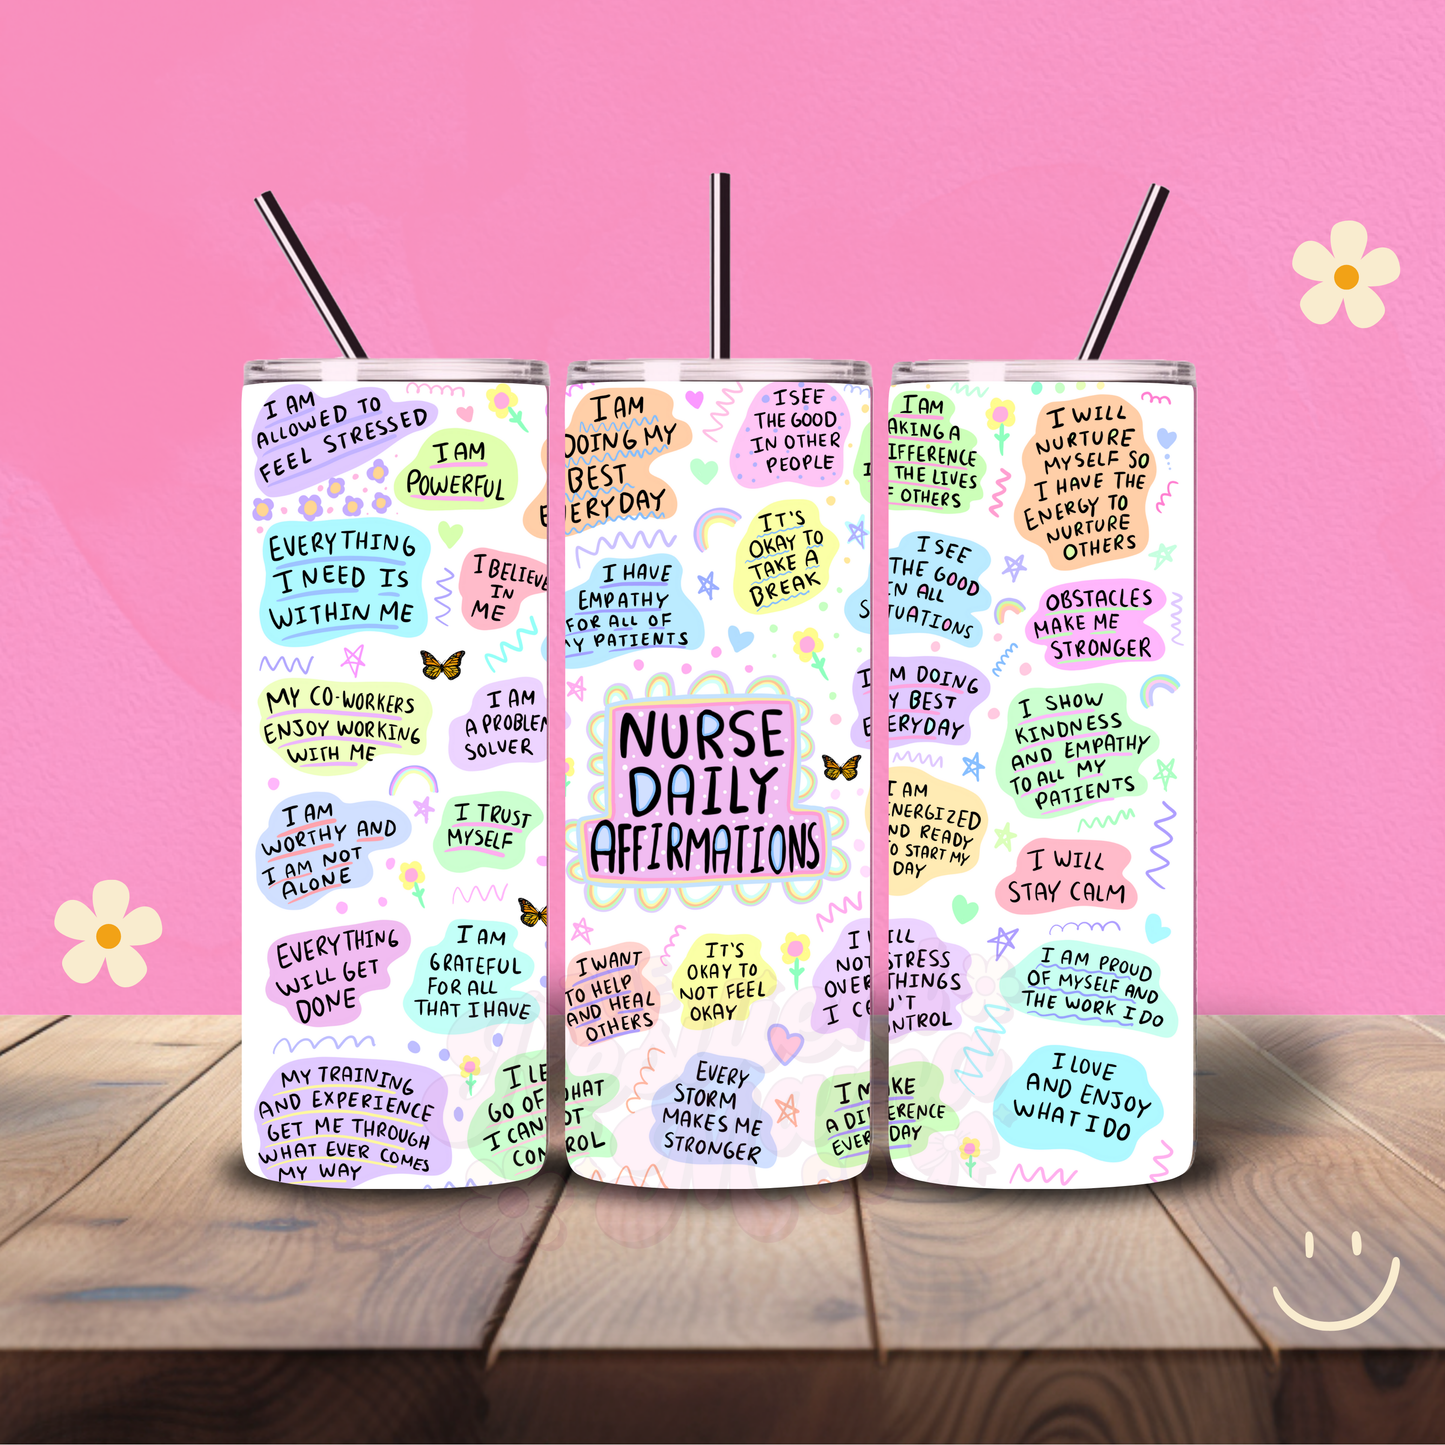 I AM
ALLOWED TO
FEEL STRESSED
I AM
POWERFUL
EVERYTHING
I NEED IS
WITHIN ME
I BELIEVE
IN
ME
MY CO-WORKERS
ENJOY WORKING
WITH ME
I AM
A PROBLEM
SOLVER
I AM
WORTHY AND
I AM NOT
ALONE
I TRUST
MYSELF
EVERYTHING
WILL GET
DONE
I AM
GRATEFUL
FOR ALL
THAT I HAVE
MY TRAINING
AND EXPERIENCE
GET ME THROUGH
WHAT EVER COMES
MY WAY
I LE
GO OF WHAT
I CANNOT
CONTROL
I AM
DOING MY
BEST
EVERYDAY
I SEE
THE GOOD
IN OTHER
PEOPLE
I HAVE
EMPATHY
FOR ALL OF
MY PATIENTS
IT'S
OKAY TO
TAKE A
BREAK
NURSE
DAILY
AFFIRMATIONS
I WANT
TO HELP
AND HEAL
OTHERS
IT'S
OKAY TO
NOT FEEL
OKAY
I WILL
NOT STRESS
OVER THINGS
I CAN'T
CONTROL
EVERY
STORM
MAKES ME
STRONGER
I MAKE
A DIFFERENCE
EVERYDAY
I AM
AKING A
IFFERENCE
THE LIVES
F OTHERS
I WILL
NURTURE
MYSELF SO
I HAVE THE
ENERGY TO
NURTURE
OTHERS
I SEE
THE GOOD
IN ALL
SITUATIONS
OBSTACLES
MAKE ME
STRONGER
I AM DOING
MY BEST
EVERYDAY
I SHOW
KINDNESS
AND EMPATHY
TO ALL MY
PATIENTS
I AM
ENERGIZED
AND READY
TO START MY
DAY
I WILL
STAY CALM
I AM PROUD
OF MYSELF AND
THE WORK I DO
I LOVE
AND ENJOY
WHAT I DO